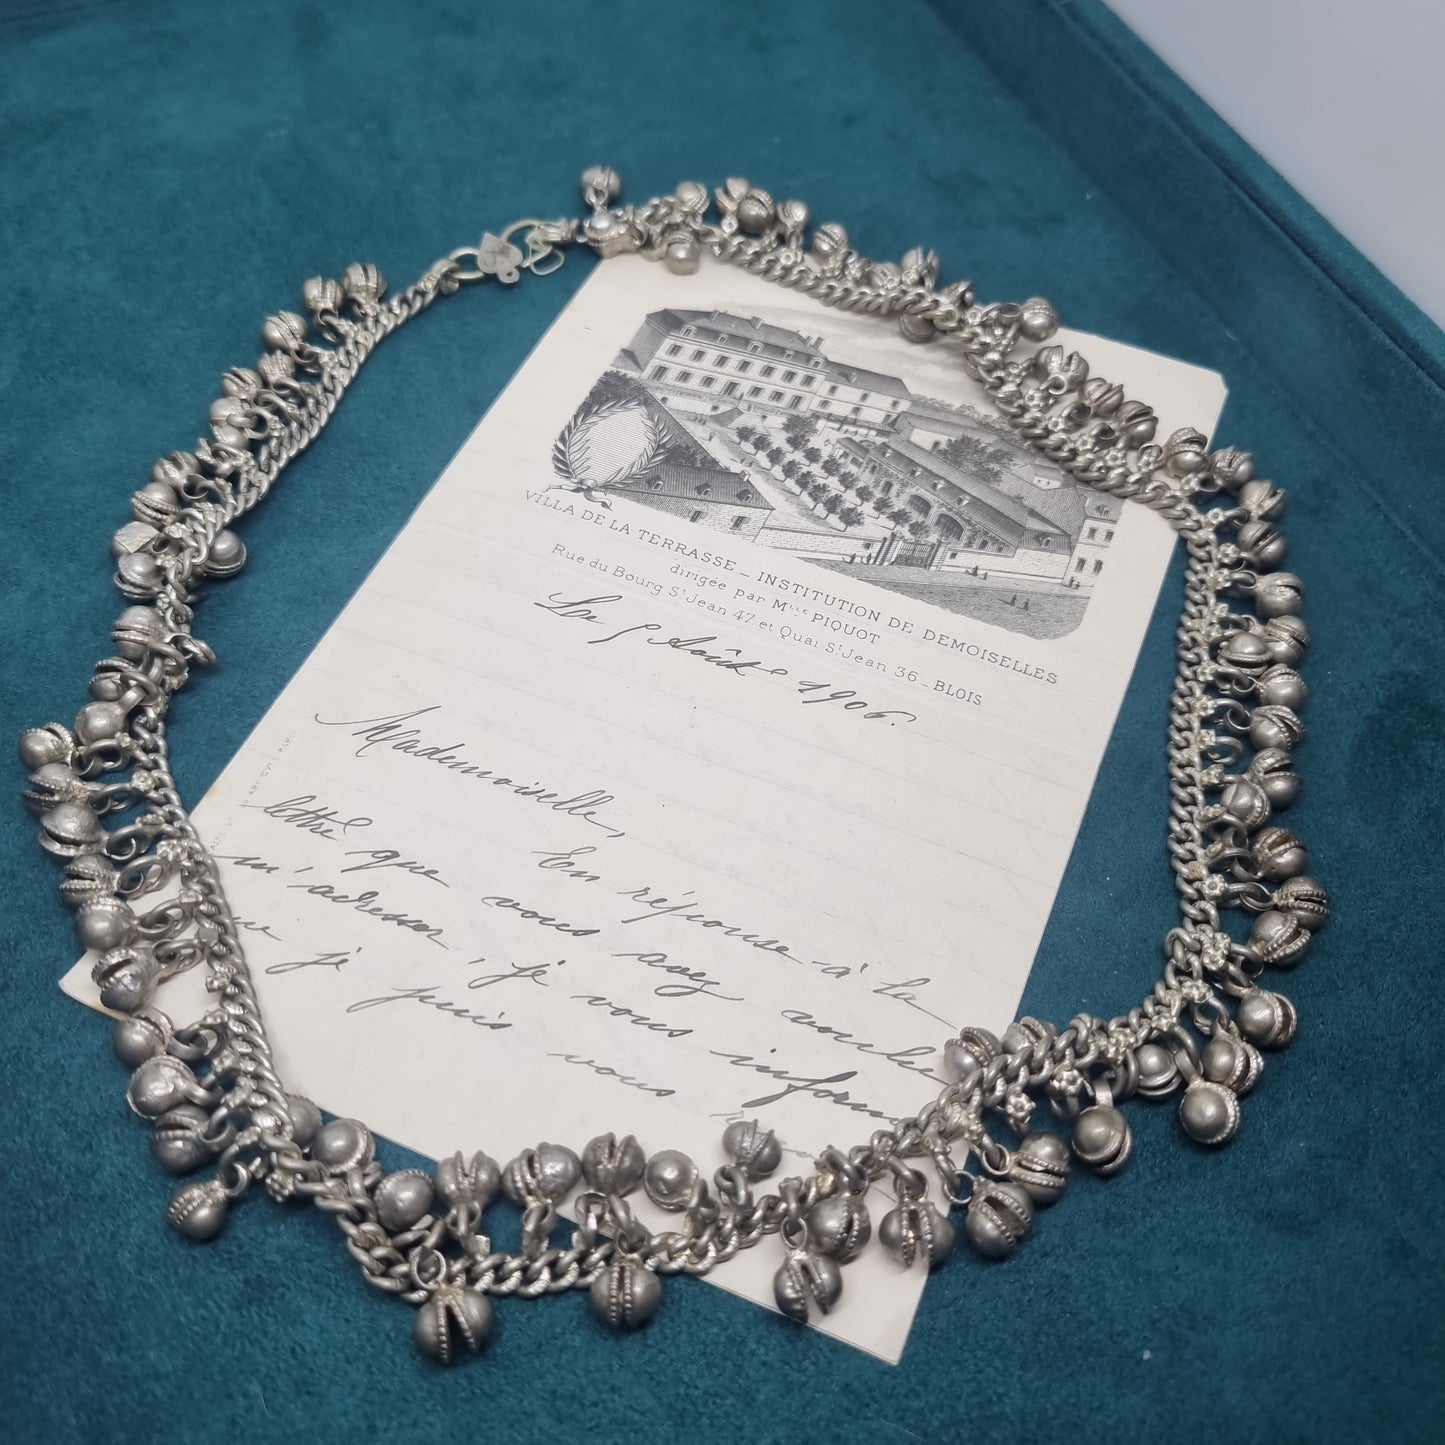 VILLA DE LA TERRASSE – INSTITUTION DE DEMOISELLES
dirigée par Mlle PIQUOT
Rue du Bourg St Jean 47 et Quai St Jean 36 – BLOIS
Le 5 Août 1906.
Mademoiselle,
En réponse à la
lettre que vous avez voulu
m'adresser, je vous inform
je puis vous